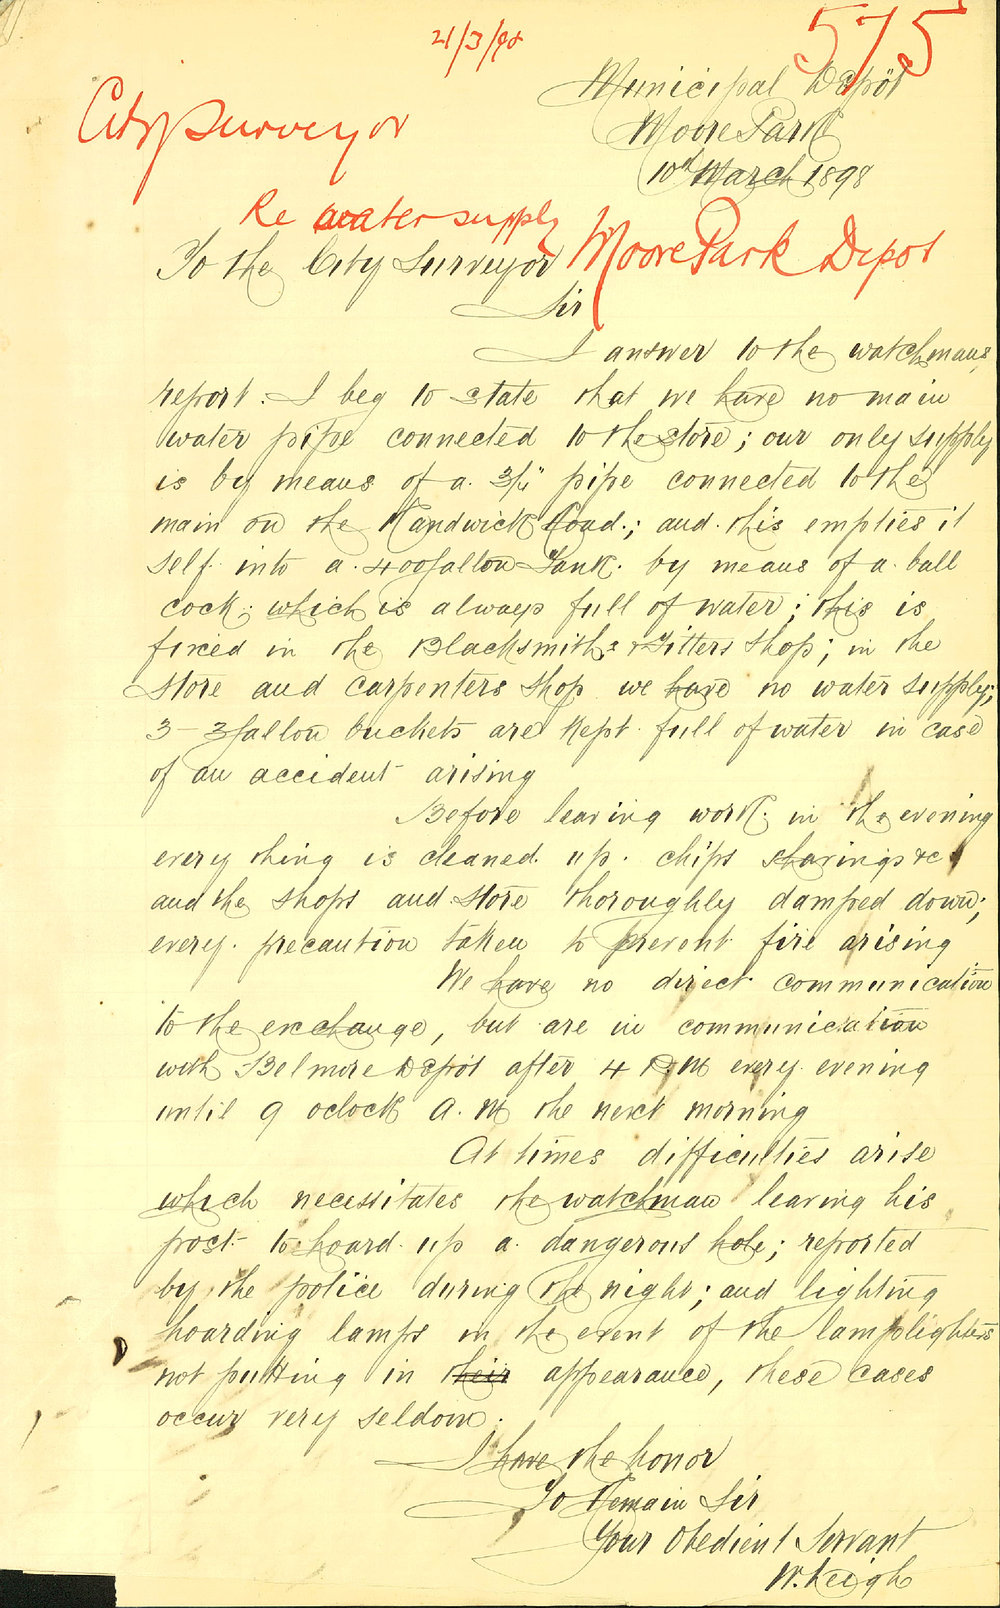 575
21/3/98
Municipal Depôt
City Surveyor
Moore Park
10th March 1898
Re water supply
Moore Park Depot
To the City Surveyor
Sir
I answer to the watchmans
report. I beg to state that we have no main
water pipe connected to the store; our only supply
is by means of a 3/4" pipe connected to the
main on the Randwick Road.; and this empties it
self into a 400 Gallon Tank. by means of a ball
cock; which is always full of water; this is
fixed in the Blacksmiths & Fitters Shop; in the
Store and Carpenters Shop we have no water supply;
3-3 Gallon buckets are kept full of water in case
of an accident arising
Before leaving work in the evening
every thing is cleaned up. chips shavings &c
and the shops and store thoroughly damped down;
every precaution taken to prevent fire arising
We have no direct communication
to the exchange, but are in communication
with Belmore Depôt after 4 P.M every evening
until 9 oclock A.M the next morning
At times difficulties arise
which necessitates the watchman leaving his
post to hoard up a dangerous hole; reported
by the police during the night; and lighting
hoarding lamps in the event of the lamplighters
not putting in their appearance, these cases
occur very seldom.
I have the honor
To Remain Sir
Your Obedient Servant
W. Keigh